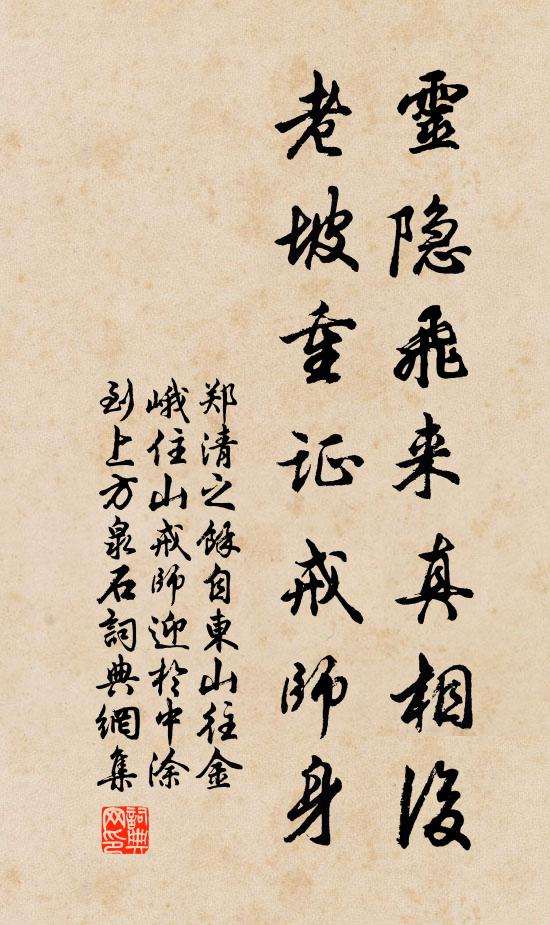 靈隐飛来真相後
老坡重证戒師身
郑清之餘自東山往金
峨住山戒師迎於中涂
到上方泉石詞典網集
詞典网印